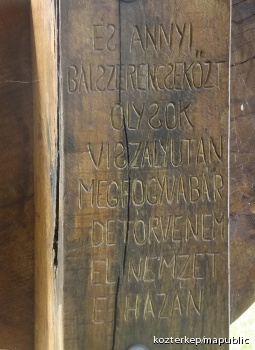 ÉS ANNYI
BALSZERENCSEKÖZT
OLYSOK
VISZÁLYUTÁN
MEGFOGYVABÁR
DETÖRVENEM
ÉL NEMZET
E HAZÁN
kozterkep/mapublic